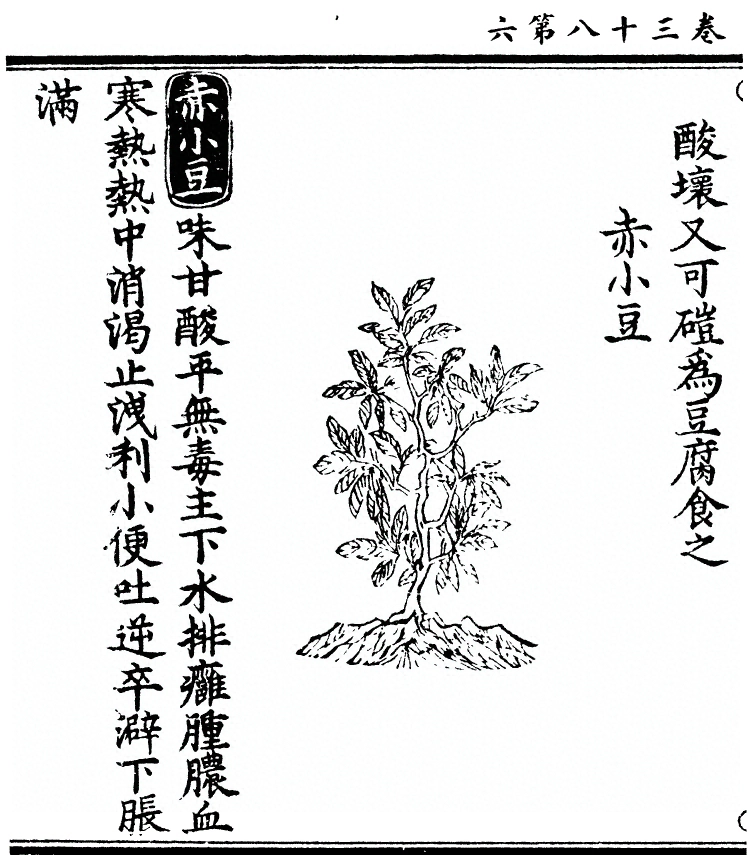 卷三十八第六
酸壞又可磑爲豆腐食之
赤小豆
赤小豆味甘酸平無毒主下水排癰腫膿血
寒熱熱中消渴止洩利小便吐逆卒澼下脹
滿